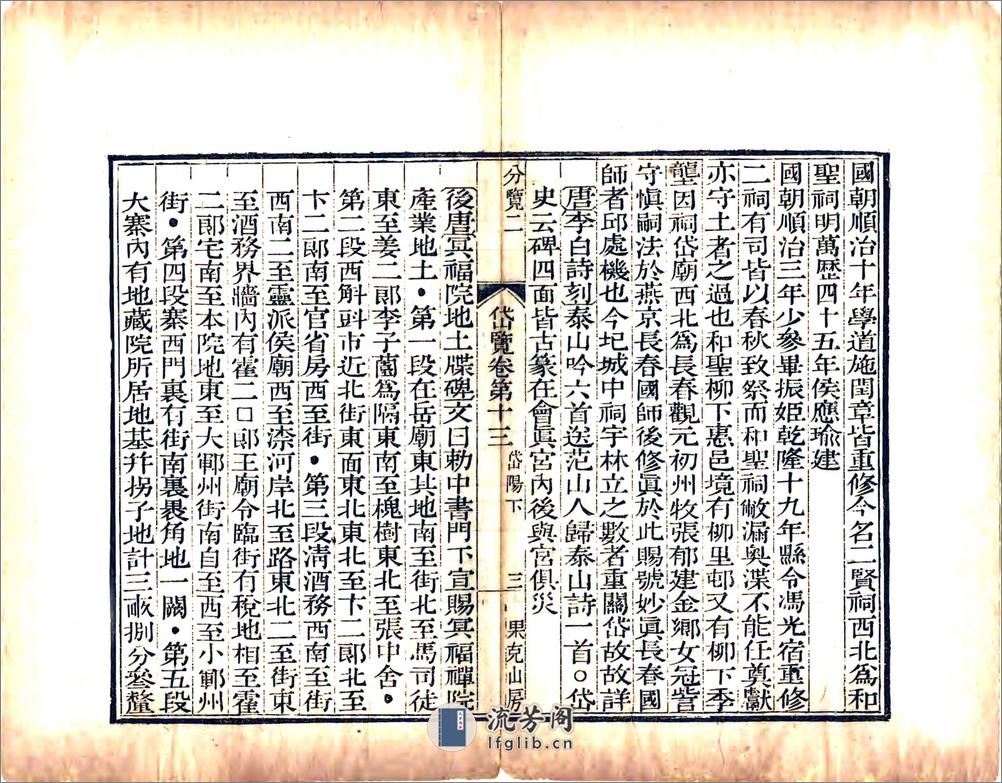 國朝順治十年學道施閏章皆重修今名二賢祠西北為和
聖祠明萬歷四十五年侯應瑜建
國朝順治三年少參畢振姬乾隆十九年縣令馮光宿重修
二祠有司皆以春秋致祭而和聖祠敝漏奥渫不能任奠獻
亦守土者之過也和聖柳下惠邑境有柳里邨又有柳下季
壟因祠岱廟西北為長春觀元初州牧張郁建金鄉女冠訾
守慎嗣法於燕京長春國師後修眞於此賜號妙眞長春國
師者邱處機也今圮城中祠宇林立之數者重關岱故故詳
唐李白詩刻泰山吟六首送范山人歸泰山詩一首○岱
史云碑四面皆古篆在會眞宮內後與宮俱災
分覽二
岱覽卷第十三
岱陽下
三
果克山房
後唐冥福院地土牒碑文曰勅中書門下宣賜冥福禪院
產業地土·第一段在岳廟東其地南至街北至馬司徒
東至姜二郞李子薗為隔東南至槐樹東北至張中舍·
第二段西斛㪷市近北街東面東北東北至卞二郞北至
卞二郞南至官省房西至街·第三段淸酒務西南至街
西南二至靈派侯廟西至㮈河岸北至路東北二至街東
至酒務界牆內有霍二口郞王廟令臨街有稅地相至霍
二郞宅南至本院地東至大鄆州街南自至西至小鄆州
街·第四段寨西門裏有街南裏畏角地一闕·第五段
大寨內有地藏院所居地基幷拐子地計三畝捌分叄釐
流芳阁
lfglib.cn